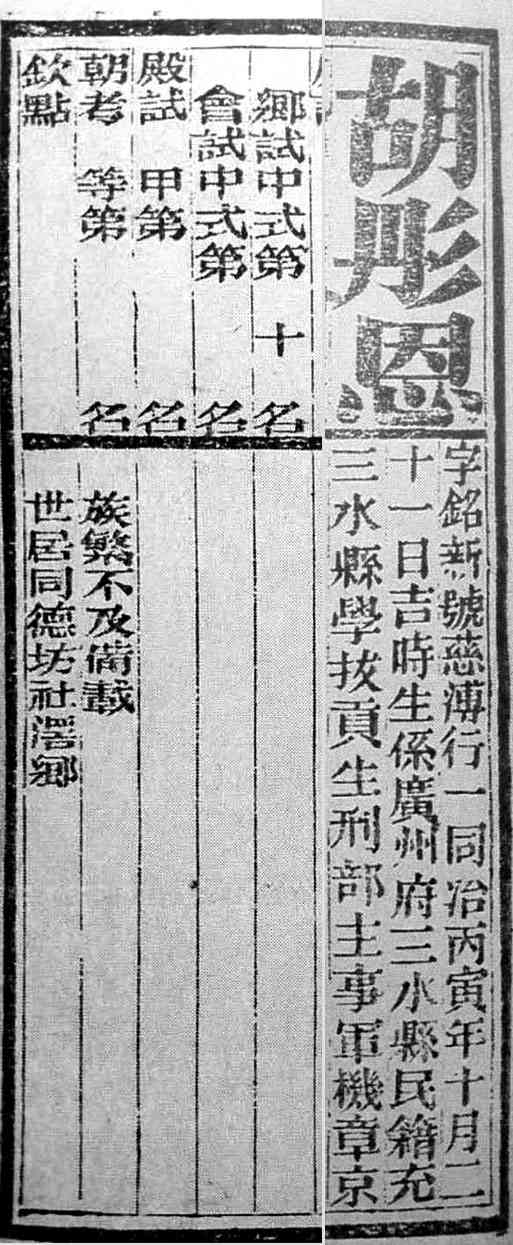 胡彤恩
字銘新號慈溥行一同治丙寅年十月二
十一日吉時生係廣州府三水縣民籍充
三水縣學拔貢生刑部主事軍機章京
鄉試中式第十名
會試中式第 名
殿試 甲第 名
朝考 等第 名
欽點
族繁不及備載
世居同德坊社澤鄉